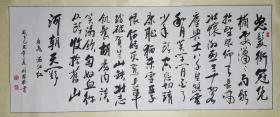 怒髮衝冠凭
欄處瀟瀟雨歇
抬望眼仰天長嘯
壯懷激烈三十功名
塵與土八千里路雲
和月莫等閑白了
少年頭空悲切靖
康恥猶未雪臣子
恨何時滅駕長車
踏破賀蘭山缺壯志
飢餐胡虜肉
笑談渴飲匈奴血
待從頭收拾舊山
河朝天闕
岳飛滿江紅